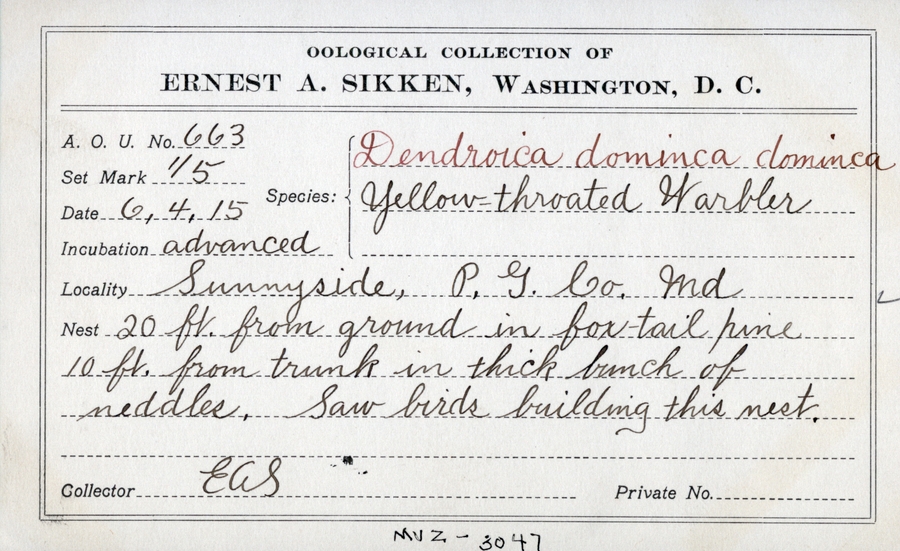 OOLOGICAL COLLECTION OF
ERNEST A. SIKKEN, WASHINGTON, D. C.
A. O. U. No. 663
Set Mark 1/5
Date 6, 4, 15
Incubation advanced
Species: Dendroica dominca dominca
Yellow=throated Warbler
Locality Sunnyside, P. G. Co. Md
Nest 20 ft. from ground in fox-tail pine
10 ft. from trunk in thick bunch of
neddles. Saw birds building this nest.
Collector EAS Private No.
MVZ - 3047